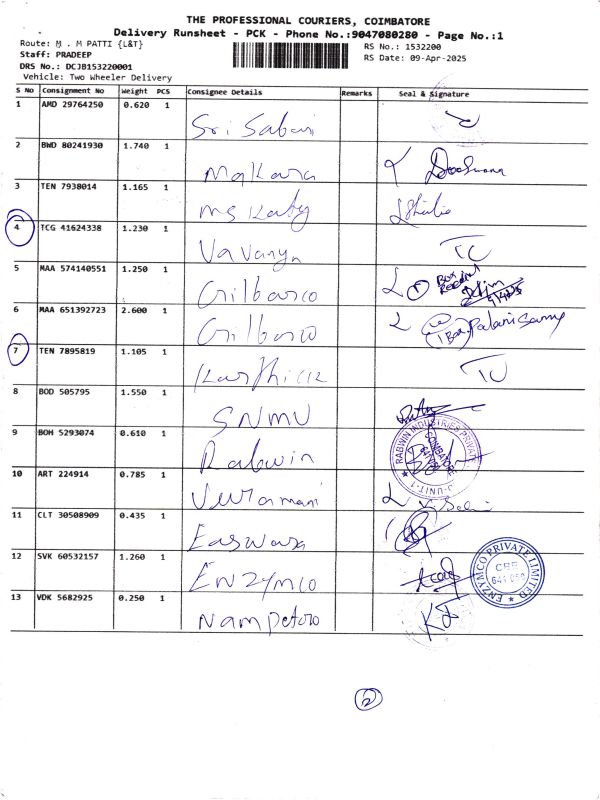 THE PROFESSIONAL COURIERS, COIMBATORE
Delivery Runsheet - PCK - Phone No.:9047080280 - Page No.:1
Route: M . M PATTI {L&T}
RS No.: 1532200
Staff: PRADEEP
RS Date: 09-Apr-2025
DRS No.: DCJB153220001
Vehicle: Two Wheeler Delivery
S No Consignment No Weight PCS Consignee Details Remarks Seal & Signature
1 AMD 29764250 0.620 1 Sri Sabari
2 BWD 80241930 1.740 1 Makara
3 TEN 7938014 1.165 1 Ms Kaby
4 TCG 41624338 1.230 1 Vavanya TC
5 MAA 574140551 1.250 1 Gilbarco Box Received
6 MAA 651392723 2.600 1 Gilbarco 1 Box Palanisamy
7 TEN 7895819 1.105 1 Karthick
8 BOD 505795 1.550 1 SNMV
9 BOH 5293074 0.610 1 Rabwin RABWIN INDUSTRIES PRIVATE COIMBATORE UNIT-1
10 ART 224914 0.785 1
11 CLT 30508909 0.435 1 Easwara
12 SVK 60532157 1.260 1 Enzymco ENZYMCO PRIVATE LIMITED CBE
13 VDK 5682925 0.250 1 Nam Petro
2